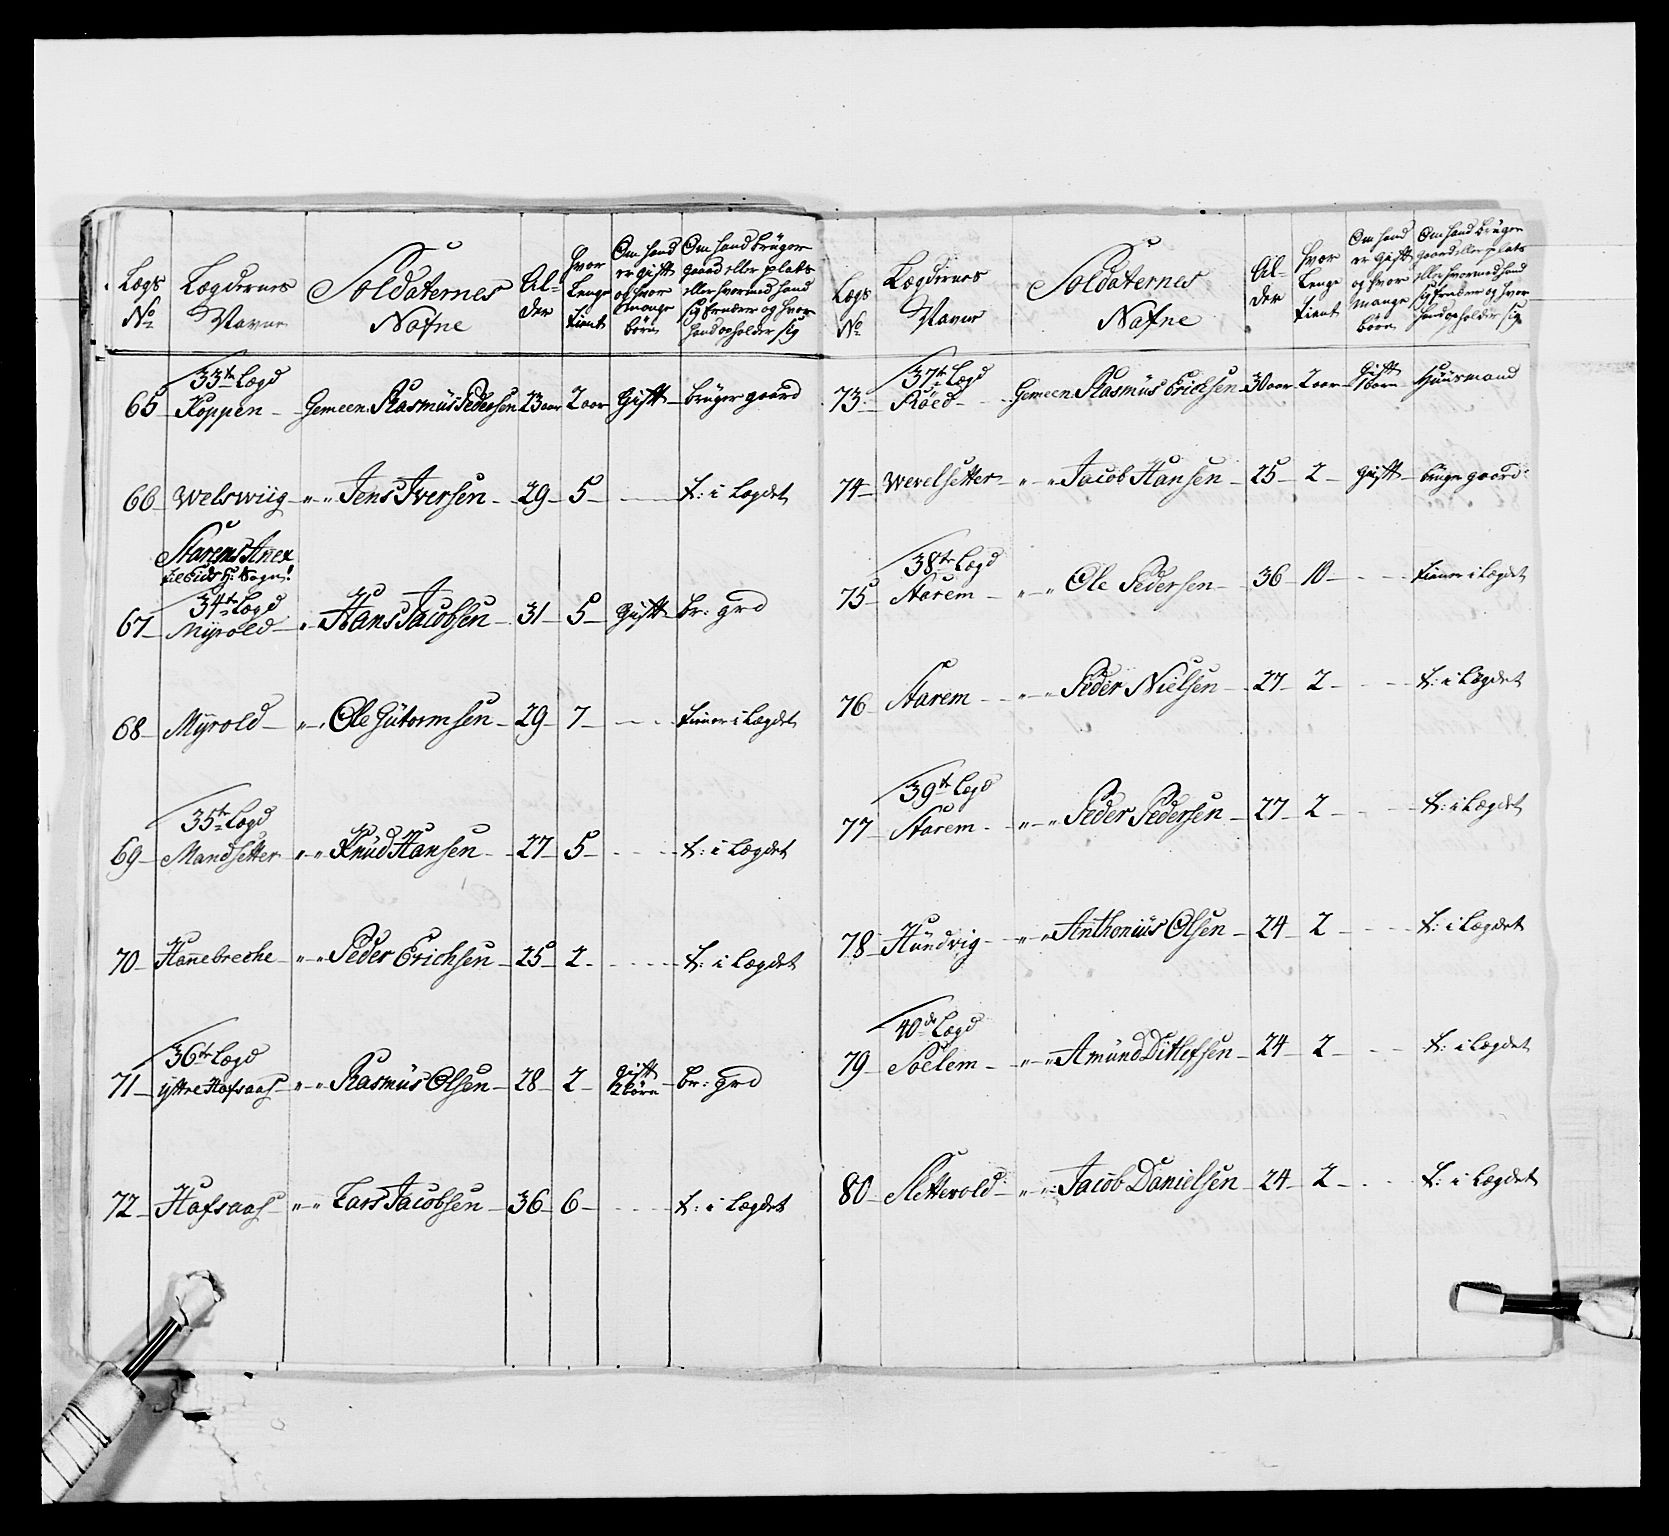 Lægs No Lægdernes Navne Soldaternes Nafne Al-der hvor Lenge tient Om hand er gift og hvor mange börn Om hand bruger gaard eller plats eller hvormed hand sig ernærer og hvor hand opholder sig
33te Lægd
65 Koppen - Gemeen Rasmus Pedersen 23 aar 2 aar Gift bruger gaard
66 Welswiig - " - " Jens Iversen - 29 - 5 - t: i Lægdet
Harems Annex
til Eids H: Sogn!
34te Lægd
67 Myrold - " Hans Jacobsen - 31 - 5 - Gift br: grd
68 Myrold - " - Ole Gutormsen - 29 - 7 - tiener i Lægdet
35te Lægd
69 Mandsetter " - " Knud Hansen - 27 - 5 - t: i Lægdet
70 Hanebrekke " - " Peder Erichsen - 25 - 2 - t: i Lægdet
36te Lægd
71 yttre Hafsaas " - " Rasmus Olsen - 28 - 2 - gift 2 börn br: grd
72 Hafsaas " - " Lars Jacobsen - 36 - 6 - t: i Lægdet
Lægs No Lægdernes Navne Soldaternes Nafne Al-der hvor Lenge tient Om hand er gift og hvor mange börn Om hand bruger gaard eller plats eller hvormed hand sig ernærer og hvor hand opholder sig
37te Lægd
73 Röed - Gemeen Rasmus Erichsen - 30 aar - 2 aar Gift 1 barn Huusmand
74 Wevelsetter - " - " Jacob Hansen - 25 - 2 - gift bruger gaard
38te Lægd
75 Harem - " - " Ole Pedersen - 36 - 10 - tiener i Lægdet
76 Harem - " - " Peder Nielsen - 27 - 2 - t: i Lægdet
39te Lægd
77 Harem - " - " Peder Pedersen - 27 - 2 - t: i Lægdet
78 Hundvig - " - " Anthonius Olsen - 24 - 2 - t: i Lægdet
40de Lægd
79 Soelem - " - " Amund Ditlefsen - 24 - 2 - t: i Lægdet
80 Sletterold - " - " Jacob Danielsen - 24 - 2 - t: i Lægdet